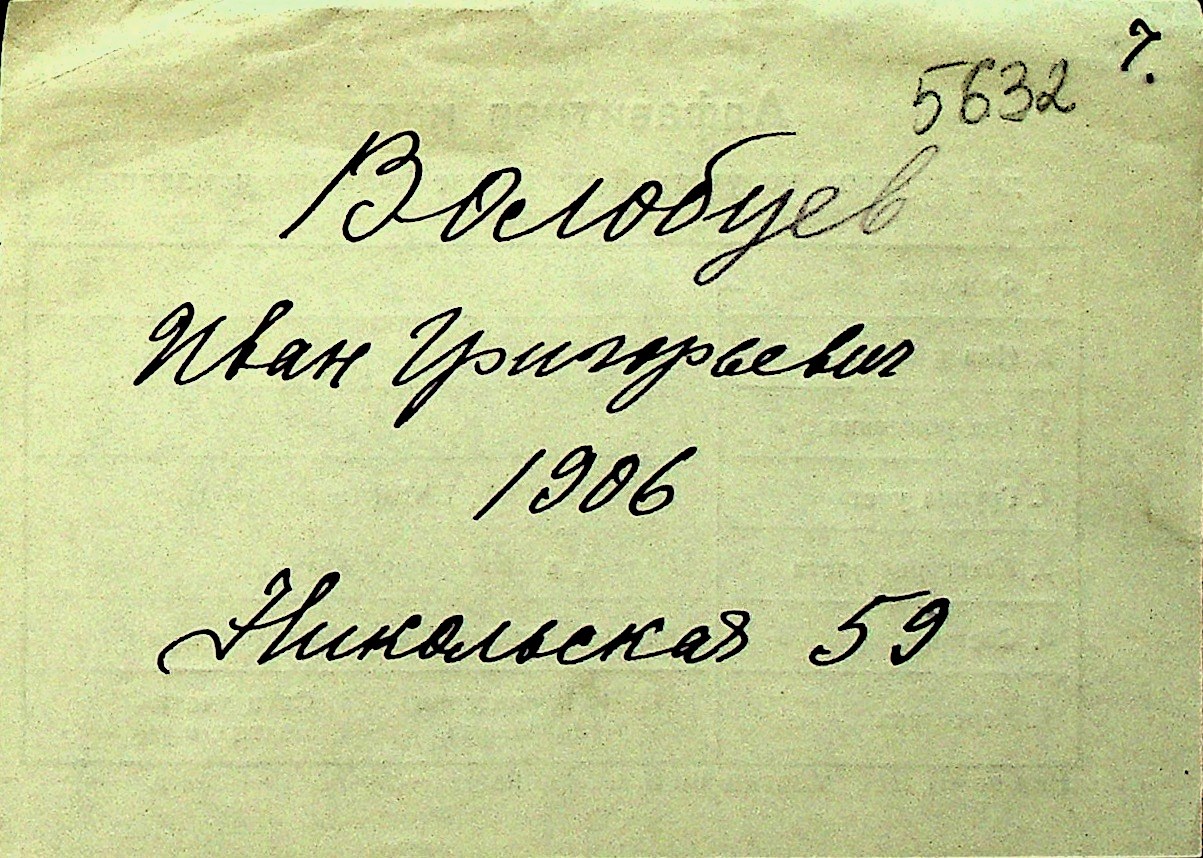 7.
5632
Волобуев
Иван Григорьевич
1906
Никольская 59